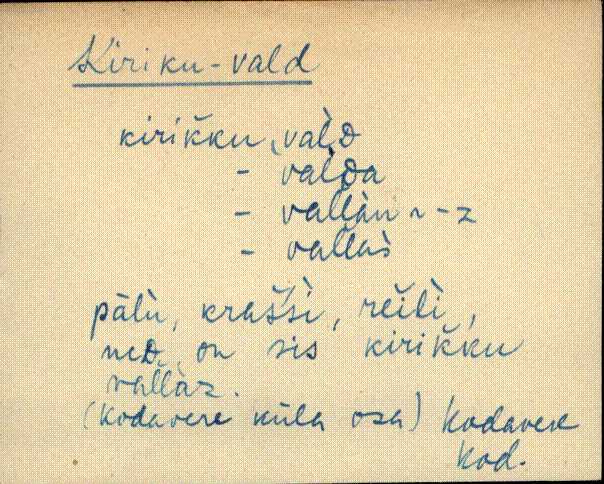 Kiriku-vald
kirikku vald
- valda
- vallàn ~ -z
- vallàs
pàlù, krassi, reili,
ned on sis kirikku
vallàz.
(Kodavere küla osa) Kodavere
Kod.